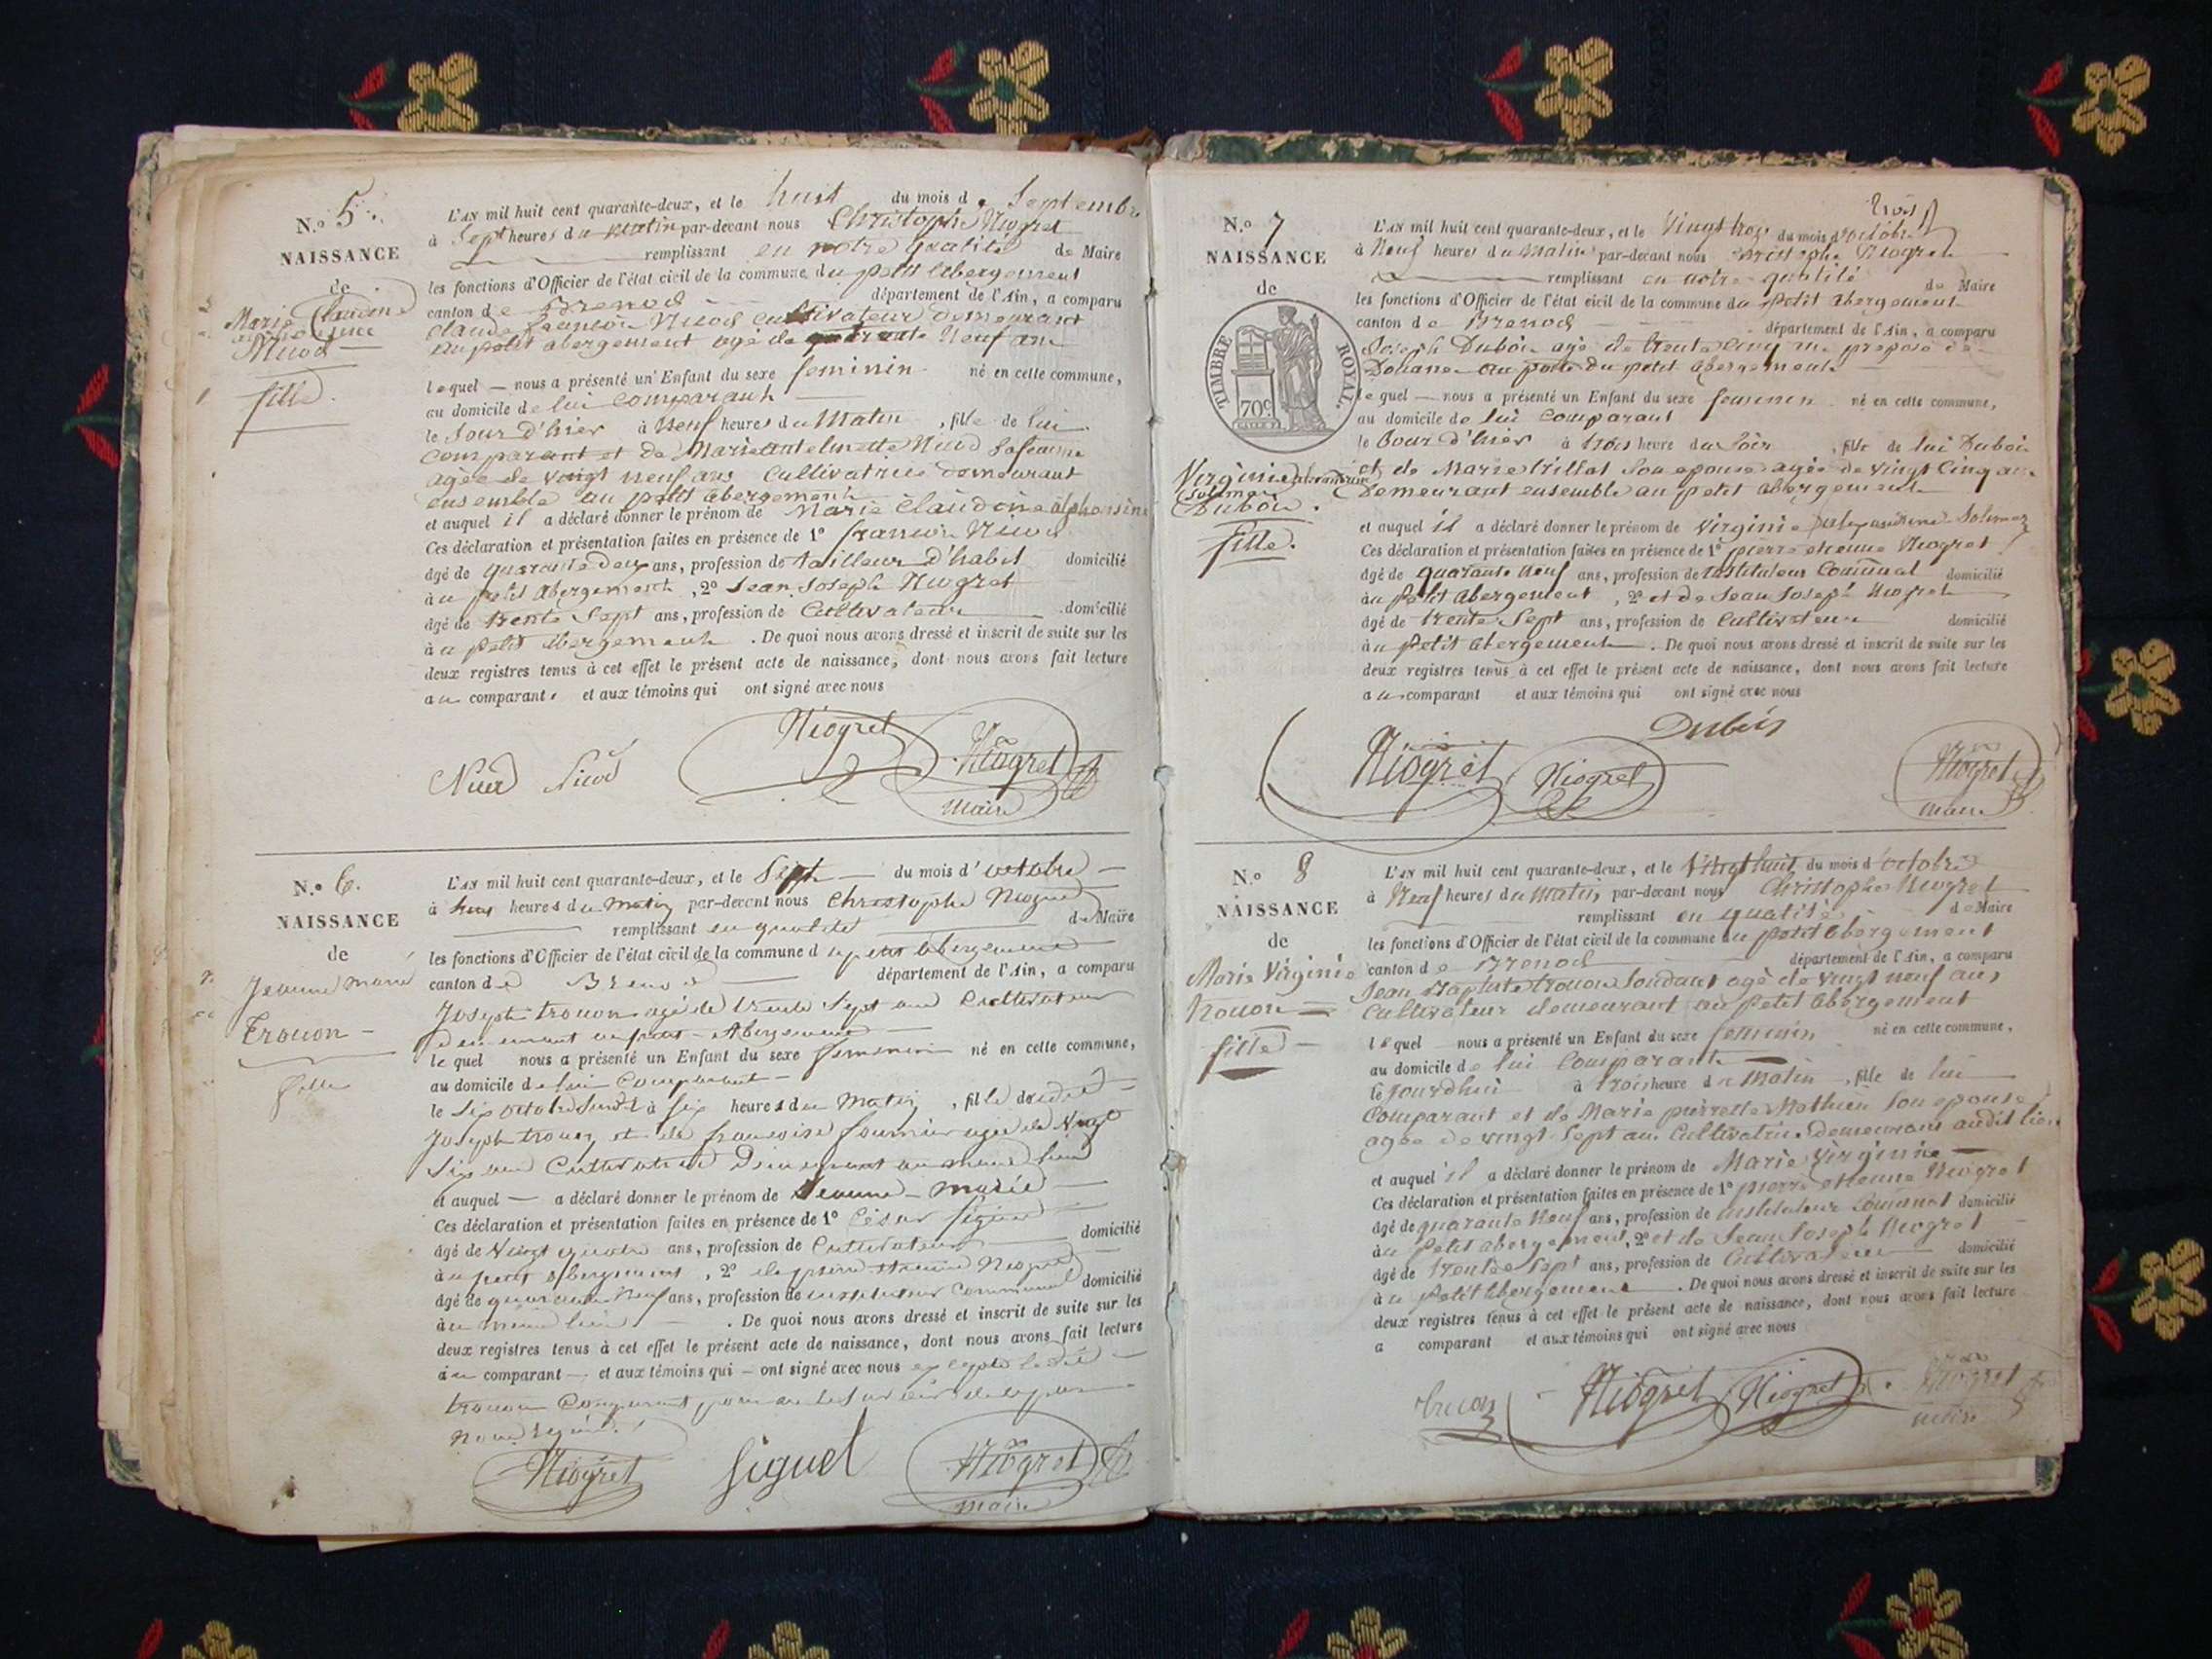 N.o 5.
NAISSANCE
de
Marie Claudine
alphonsine
Nicod
fille.
L'AN mil huit cent quarante-deux, et le huit du mois de Septembre
à Sept heures du matin par-devant nous Christophe Niogret
remplissant en notre qualité de Maire
les fonctions d'Officier de l'état civil de la commune du petit abergement
canton de Brenod département de l'Ain, a comparu
Claude françois Nicod cultivateur demeurant
au petit abergement agé de quarante Neuf ans
lequel nous a présenté un Enfant du sexe feminin né en cette commune,
au domicile de lui comparant
le Jour d'hier à Neuf heures du Matin, fille de lui
comparant et de Marie Nicod Sa femme
agée de vingt neuf ans Cultivatrice demeurant
ensemble au petit abergement
et auquel il a déclaré donner le prénom de Marie Claudine alphonsine
Ces déclaration et présentation faites en présence de 1o françois Nicod
âgé de quarante deux ans, profession de tailleur d'habit domicilié
à au petit abergement, 2o Jean Joseph Niogret
âgé de trente Sept ans, profession de Cultivateur domicilié
à au petit abergement. De quoi nous avons dressé et inscrit de suite sur les
deux registres tenus à cet effet le présent acte de naissance, dont nous avons fait lecture
au comparant et aux témoins qui ont signé avec nous
Nicod Nicod Niogret Niogret
Maire
N.o 6.
NAISSANCE
de
Jeanne Marie
Trouon
fille
L'AN mil huit cent quarante-deux, et le Sept du mois d'octobre
à heures du Matin par-devant nous Christophe Niogret
remplissant en qualité de Maire
les fonctions d'Officier de l'état civil de la commune du petit abergement
canton de Brenod département de l'Ain, a comparu
Joseph trouon agé de trente Sept ans Cultivateur
demeurant au petit-Abergement
lequel nous a présenté un Enfant du sexe feminin né en cette commune,
au domicile de lui Comparant
le Six octobre à Six heures du Matin, fille dudit
Joseph trouon et de françoise fournier agée de Vingt
Six ans Cultivatrice Demeurant au même lieu
et auquel a déclaré donner le prénom de Jeanne-Marie
Ces déclaration et présentation faites en présence de 1o César Siguet
âgé de Vingt quatre ans, profession de Cultivateur domicilié
à au petit abergement, 2o de pierre etienne Niogret
âgé de quarante Neuf ans, profession de instituteur Communal domicilié
à au même lieu. De quoi nous avons dressé et inscrit de suite sur les
deux registres tenus à cet effet le présent acte de naissance, dont nous avons fait lecture
au comparant et aux témoins qui ont signé avec nous excepté ledit
trouon Comparant pour ne le Savoir de ce par
nous requis.
Niogret Siguet Niogret
Maire
trois
N.o 7
NAISSANCE
de
TIMBRE ROYAL.
70c
Virginie
Solomer
Dubois.
fille.
L'AN mil huit cent quarante-deux, et le Vingt trois du mois d'octobre
à Neuf heures du Matin par-devant nous Christophe Niogret
remplissant en notre qualité de Maire
les fonctions d'Officier de l'état civil de la commune du Petit abergement
canton de Brenod département de l'Ain, a comparu
Joseph Dubois agé de trente cinq ans préposé de
Douanes au poste du petit abergement
lequel nous a présenté un Enfant du sexe feminin né en cette commune,
au domicile de lui comparant
le Jour d'hier à trois heure du Soir, fille de lui Dubois
et de Marie trillat Son epouse agée de vingt Cinq ans
Demeurant ensemble au petit abergement
et auquel il a déclaré donner le prénom de Virginie Solomer
Ces déclaration et présentation faites en présence de 1o pierre etienne Niogret
âgé de quarante Neuf ans, profession de instituteur Communal domicilié
à au petit abergement, 2o et de Jean Joseph Niogret
âgé de trente Sept ans, profession de Cultivateur domicilié
à au petit abergement. De quoi nous avons dressé et inscrit de suite sur les
deux registres tenus à cet effet le présent acte de naissance, dont nous avons fait lecture
au comparant et aux témoins qui ont signé avec nous
Dubois
Niogret Niogret Niogret
maire
N.o 8
NAISSANCE
de
Marie Virginie
trouon
fille
L'AN mil huit cent quarante-deux, et le Vingt huit du mois d'octobre
à Neuf heures du Matin, par-devant nous Christophe Niogret
remplissant en qualité de Maire
les fonctions d'Officier de l'état civil de la commune du petit abergement
canton de Brenod département de l'Ain, a comparu
Jean Baptiste trouon agé de vingt neuf ans,
Cultivateur demeurant au petit abergement
lequel nous a présenté un Enfant du sexe feminin né en cette commune,
au domicile de lui Comparant
le Jourdhui à trois heure du Matin, fille de lui
Comparant et de Marie pierrette Mathieu Son epouse
agée de vingt Sept ans Cultivatrice demeurans audit lieu
et auquel il a déclaré donner le prénom de Marie Virginie
Ces déclaration et présentation faites en présence de 1o pierre etienne Niogret
âgé de quarante Neuf ans, profession de instituteur Communal domicilié
à au petit abergement, 2o et de Jean Joseph Niogret
âgé de trente Sept ans, profession de Cultivateur domicilié
à au petit abergement. De quoi nous avons dressé et inscrit de suite sur les
deux registres tenus à cet effet le présent acte de naissance, dont nous avons fait lecture
a comparant et aux témoins qui ont signé avec nous
trouon Niogret Niogret Niogret
maire